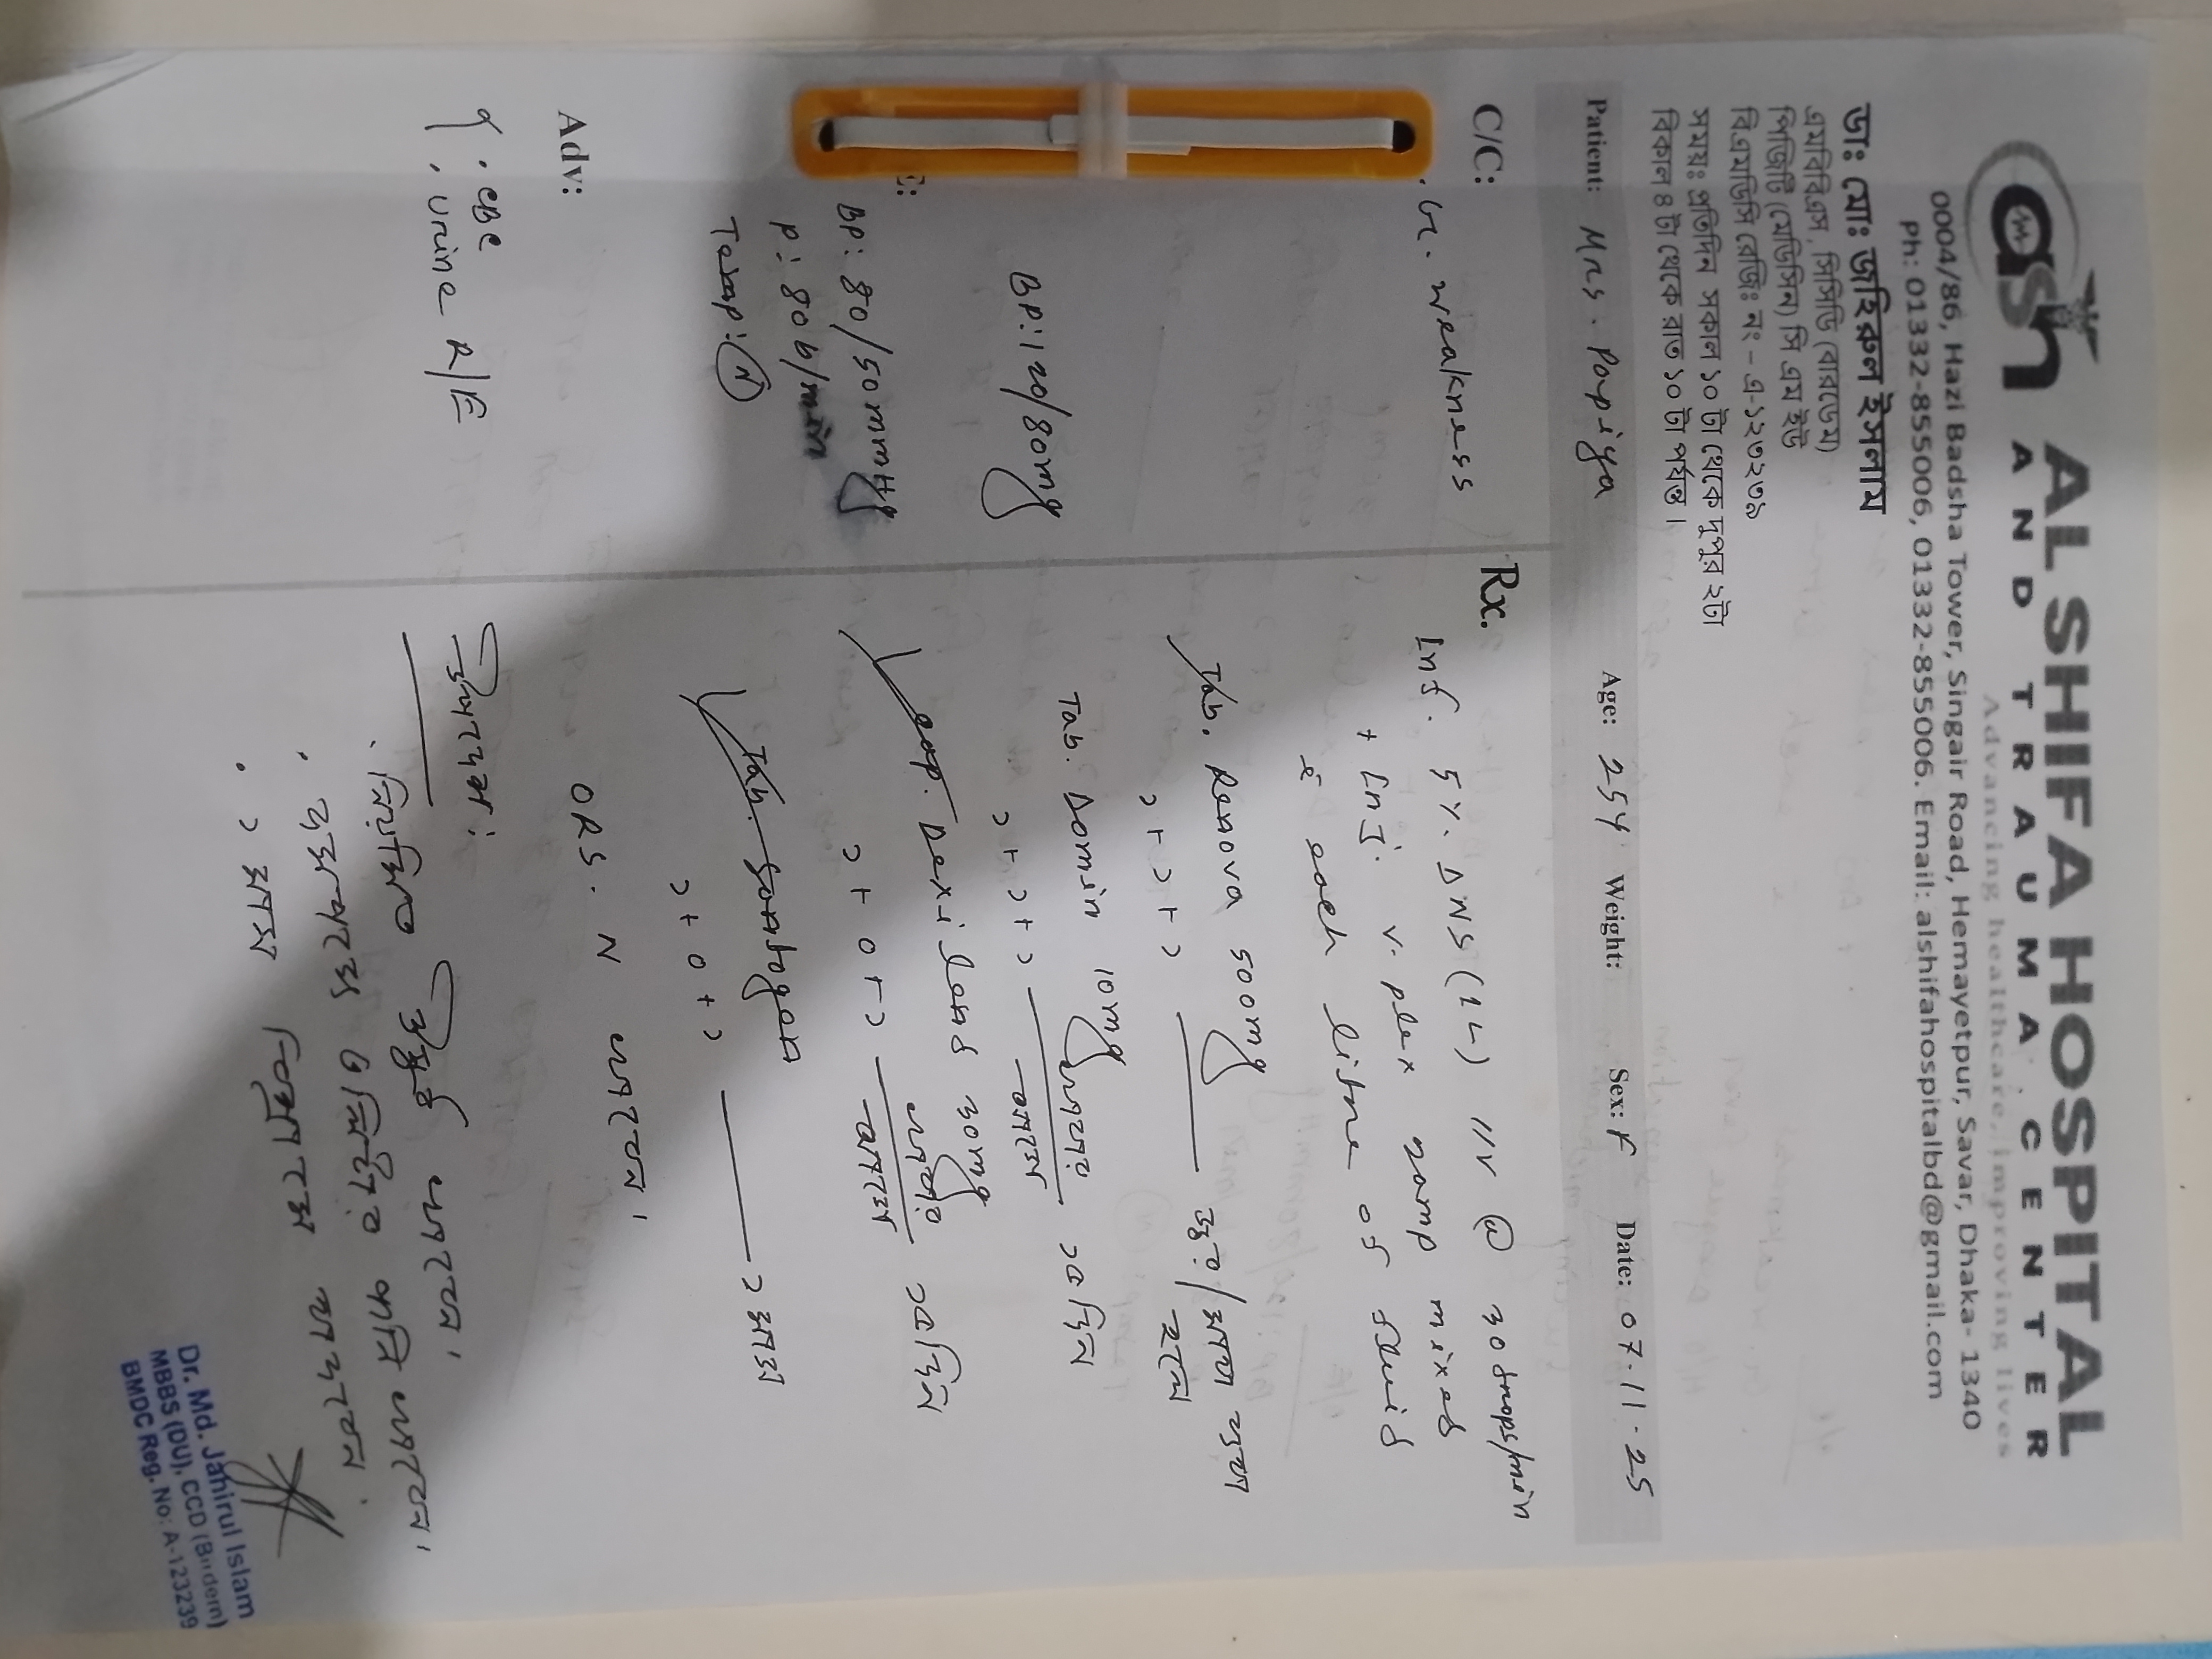 ash AL SHIFA HOSPITAL
AND TRAUMA CENTER
Advancing healthcare, improving lives
0004/86, Hazi Badsha Tower, Singair Road, Hemayetpur, Savar, Dhaka- 1340
Ph: 01332-855006, 01332-855006. Email: alshifahospitalbd@gmail.com
ডাঃ মোঃ জহিরুল ইসলাম
এমবিবিএস, সিসিডি (বারডেম)
পিজিটি (মেডিসিন) সি এম ইউ
বিএমডিসি রেজিঃ নং - এ-১২৩২৩৯
সময়ঃ প্রতিদিন সকাল ১০ টা থেকে দুপুর ২টা
বিকাল ৪ টা থেকে রাত ১০ টা পর্যন্ত।
Patient: Mrs. Papiya Age: 25y Weight: Sex: F Date: 07.11.25
C/C:
. G. weakness
BP: 120/80mg
E:
BP: 80/50mmHg
P: 80 b/min
Temp: N
Adv:
. CBC
. Urine R/E
Rx.
Inf. 5% DNS (1L) IV @ 30 drops/min
+ Inj. V. plex 2 amp mixed
c̄ each litre of fluid
Tab. Renova 500mg
১+১+১ জ্বর/
Tab. Domin 10mg
১+১+১ খাওয়ার আগে ১০ দিন
cap. Dexilend 30mg
১+০+১ খাওয়ার আগে ১০ দিন
Tab.
১+০+১ ১ মাস
ORS. N খাবেন।
উপদেশ:
. নিয়মিত ঔষুধ খাবেন।
. ও পানি খাবেন।
. ১ মাস পরে
Dr. Md. Jahirul Islam
MBBS (DU), CCD (Birdem)
BMDC Reg. No: A-123239